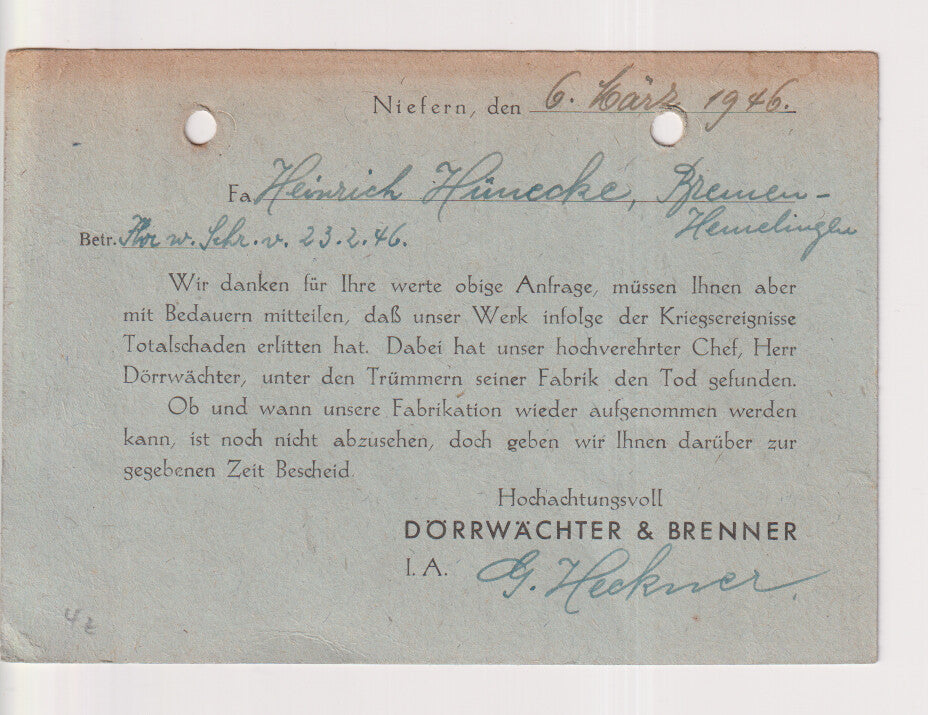 Niefern, den 6. März 1946.
Fa. Heinrich Hünecke, Bremen-
Hemelingen
Betr. Ihr w. Schr. v. 23.2.46.
Wir danken für Ihre werte obige Anfrage, müssen Ihnen aber
mit Bedauern mitteilen, daß unser Werk infolge der Kriegsereignisse
Totalschaden erlitten hat. Dabei hat unser hochverehrter Chef, Herr
Dörrwächter, unter den Trümmern seiner Fabrik den Tod gefunden.
Ob und wann unsere Fabrikation wieder aufgenommen werden
kann, ist noch nicht abzusehen, doch geben wir Ihnen darüber zur
gegebenen Zeit Bescheid.
Hochachtungsvoll
DÖRRWÄCHTER & BRENNER
I. A. G. Heckner.